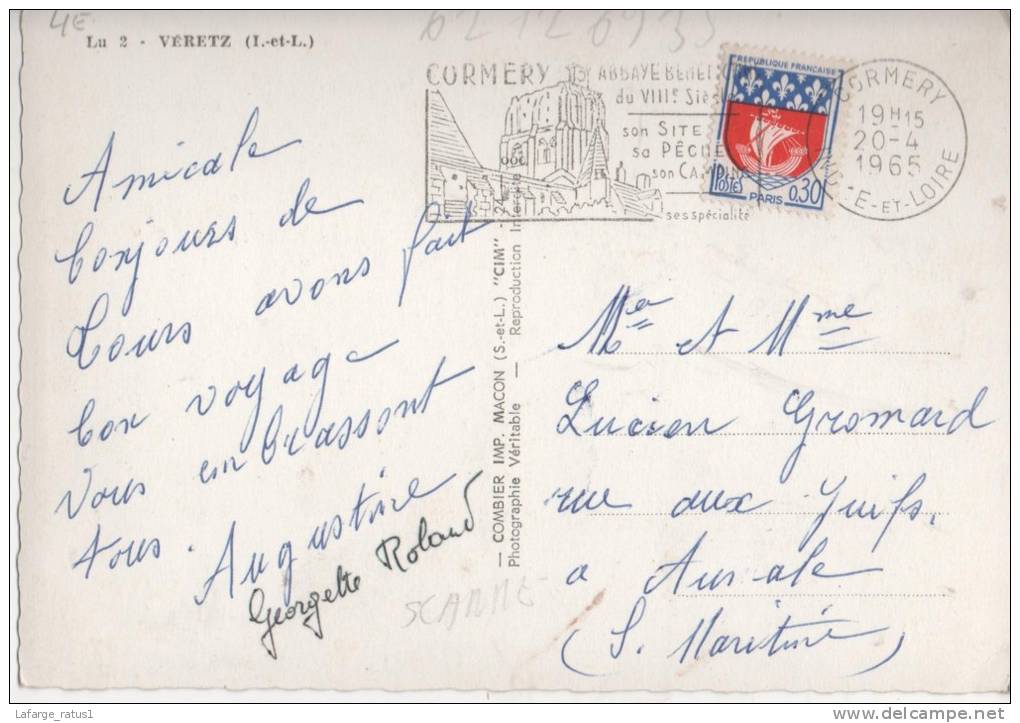 4E
Lu 2 - VÉRETZ (I.-et-L.)
CORMERY
ABBAYE BENE
du VIIIe Siè
son SITE
sa PÊCHE
son CAMPING
ses spécialité
REPUBLIQUE FRANÇAISE
POSTES
0,30
PARIS
CORMERY
19H15
20-4
1965
E-ET-LOIRE
Amicale
bonjours de
Tours avons fait
bon voyage
Vous embrassont
tous. Augustine
Georgette Roland
— COMBIER IMP. MACON (S.-et-L.) "CIM" -
Photographie Véritable — Reproduction Interdite
SCANNE
Mer et Mme
Lucien Gromard
rue aux Juifs.
a Aumale
(S. Maritime)
Lafarge_ratus1
www.delcampe.net